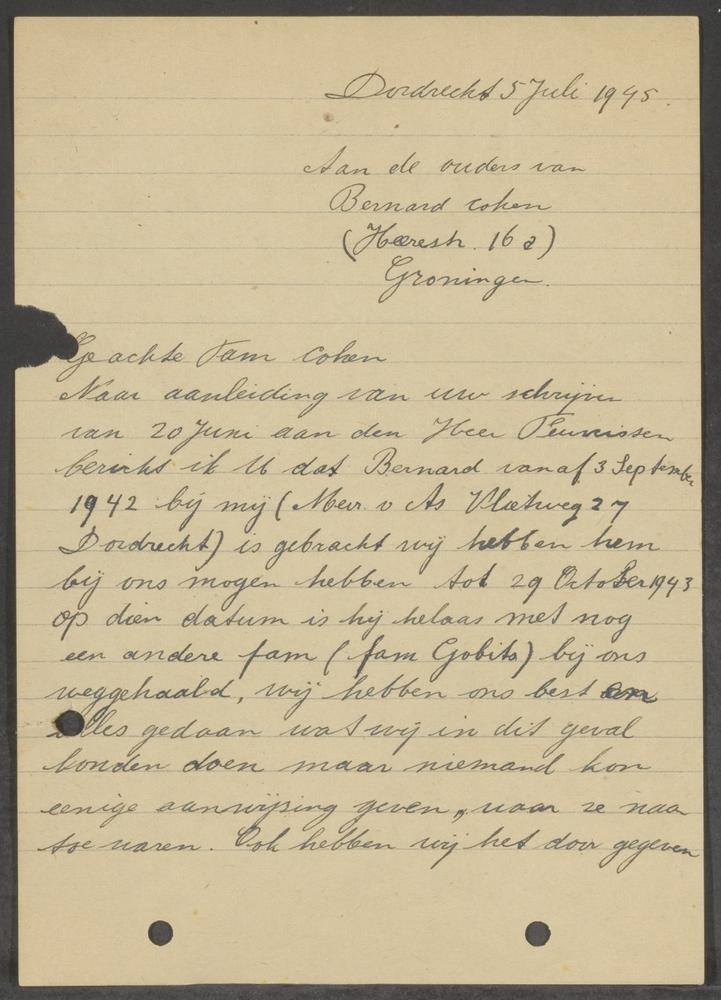 Dordrecht 5 Juli 1945.
Aan de ouders van
Bernard cohen
(Heerestr. 16 a)
Groningen.
Geachte Fam Cohen
Naar aanleiding van uw schrijven
van 20 Juni aan den Heer Teunissen
bericht ik U dat Bernard vanaf 3 September
1942 bij mij (Mevr. v As Vlietweg 27
Dordrecht) is gebracht wij hebben hem
bij ons mogen hebben tot 29 October 1943
op dien datum is hij helaas met nog
een andere fam (fam Gobits) bij ons
weggehaald, wij hebben ons best en
alles gedaan wat wij in dit geval
konden doen maar niemand kon
eenige aanwijzing geven, waar ze naar
toe waren. Ook hebben wij het door gegeven